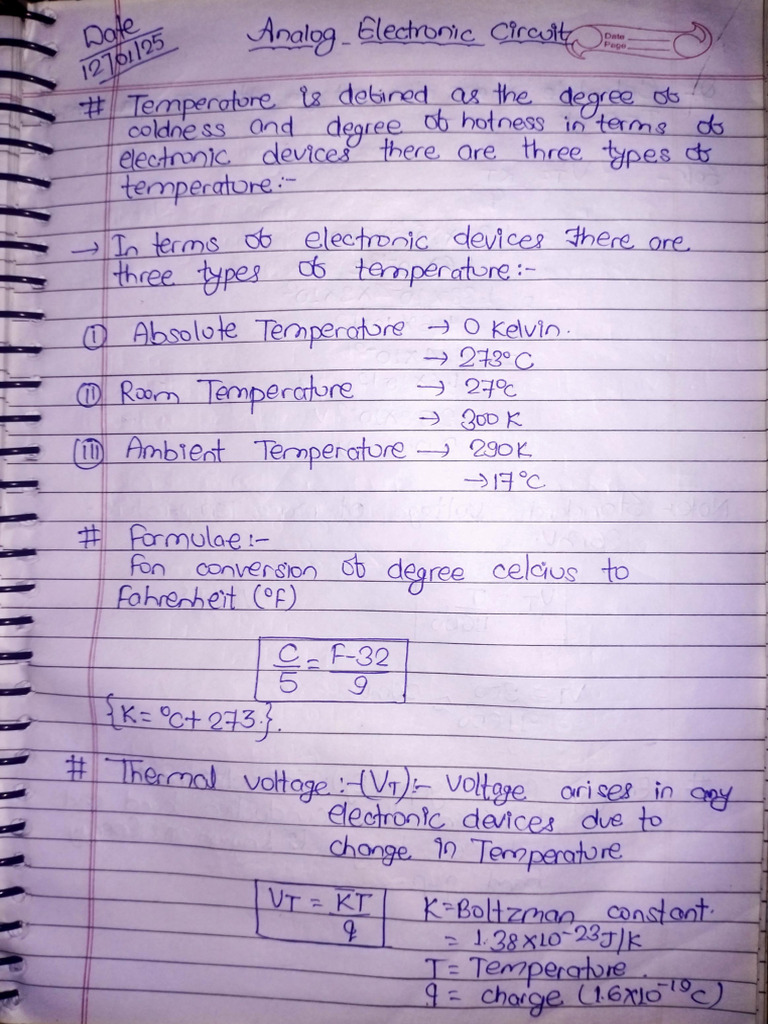 Date
12/01/25
Analog Electronic Circuit
Date
Page
# Temperature is defined as the degree of
coldness and degree of hotness in terms of
electronic devices there are three types of
temperature:-
→ In terms of electronic devices there are
three types of temperature:-
(I) Absolute Temperature → 0 Kelvin.
→ 273°C
(II) Room Temperature → 27°C
→ 300 K
(III) Ambient Temperature → 290K
→ 17°C
# Formulae:-
For conversion of degree celcius to
Fahrenheit (°F)
C/5 = F-32/9
{K = °C + 273.}.
# Thermal voltage :-(VT):- Voltage arises in any
electronic devices due to
change in Temperature
VT = KT/q K = Boltzman constant.
= 1.38×10-23 J/K
T = Temperature.
q = charge (1.6×10-19C)